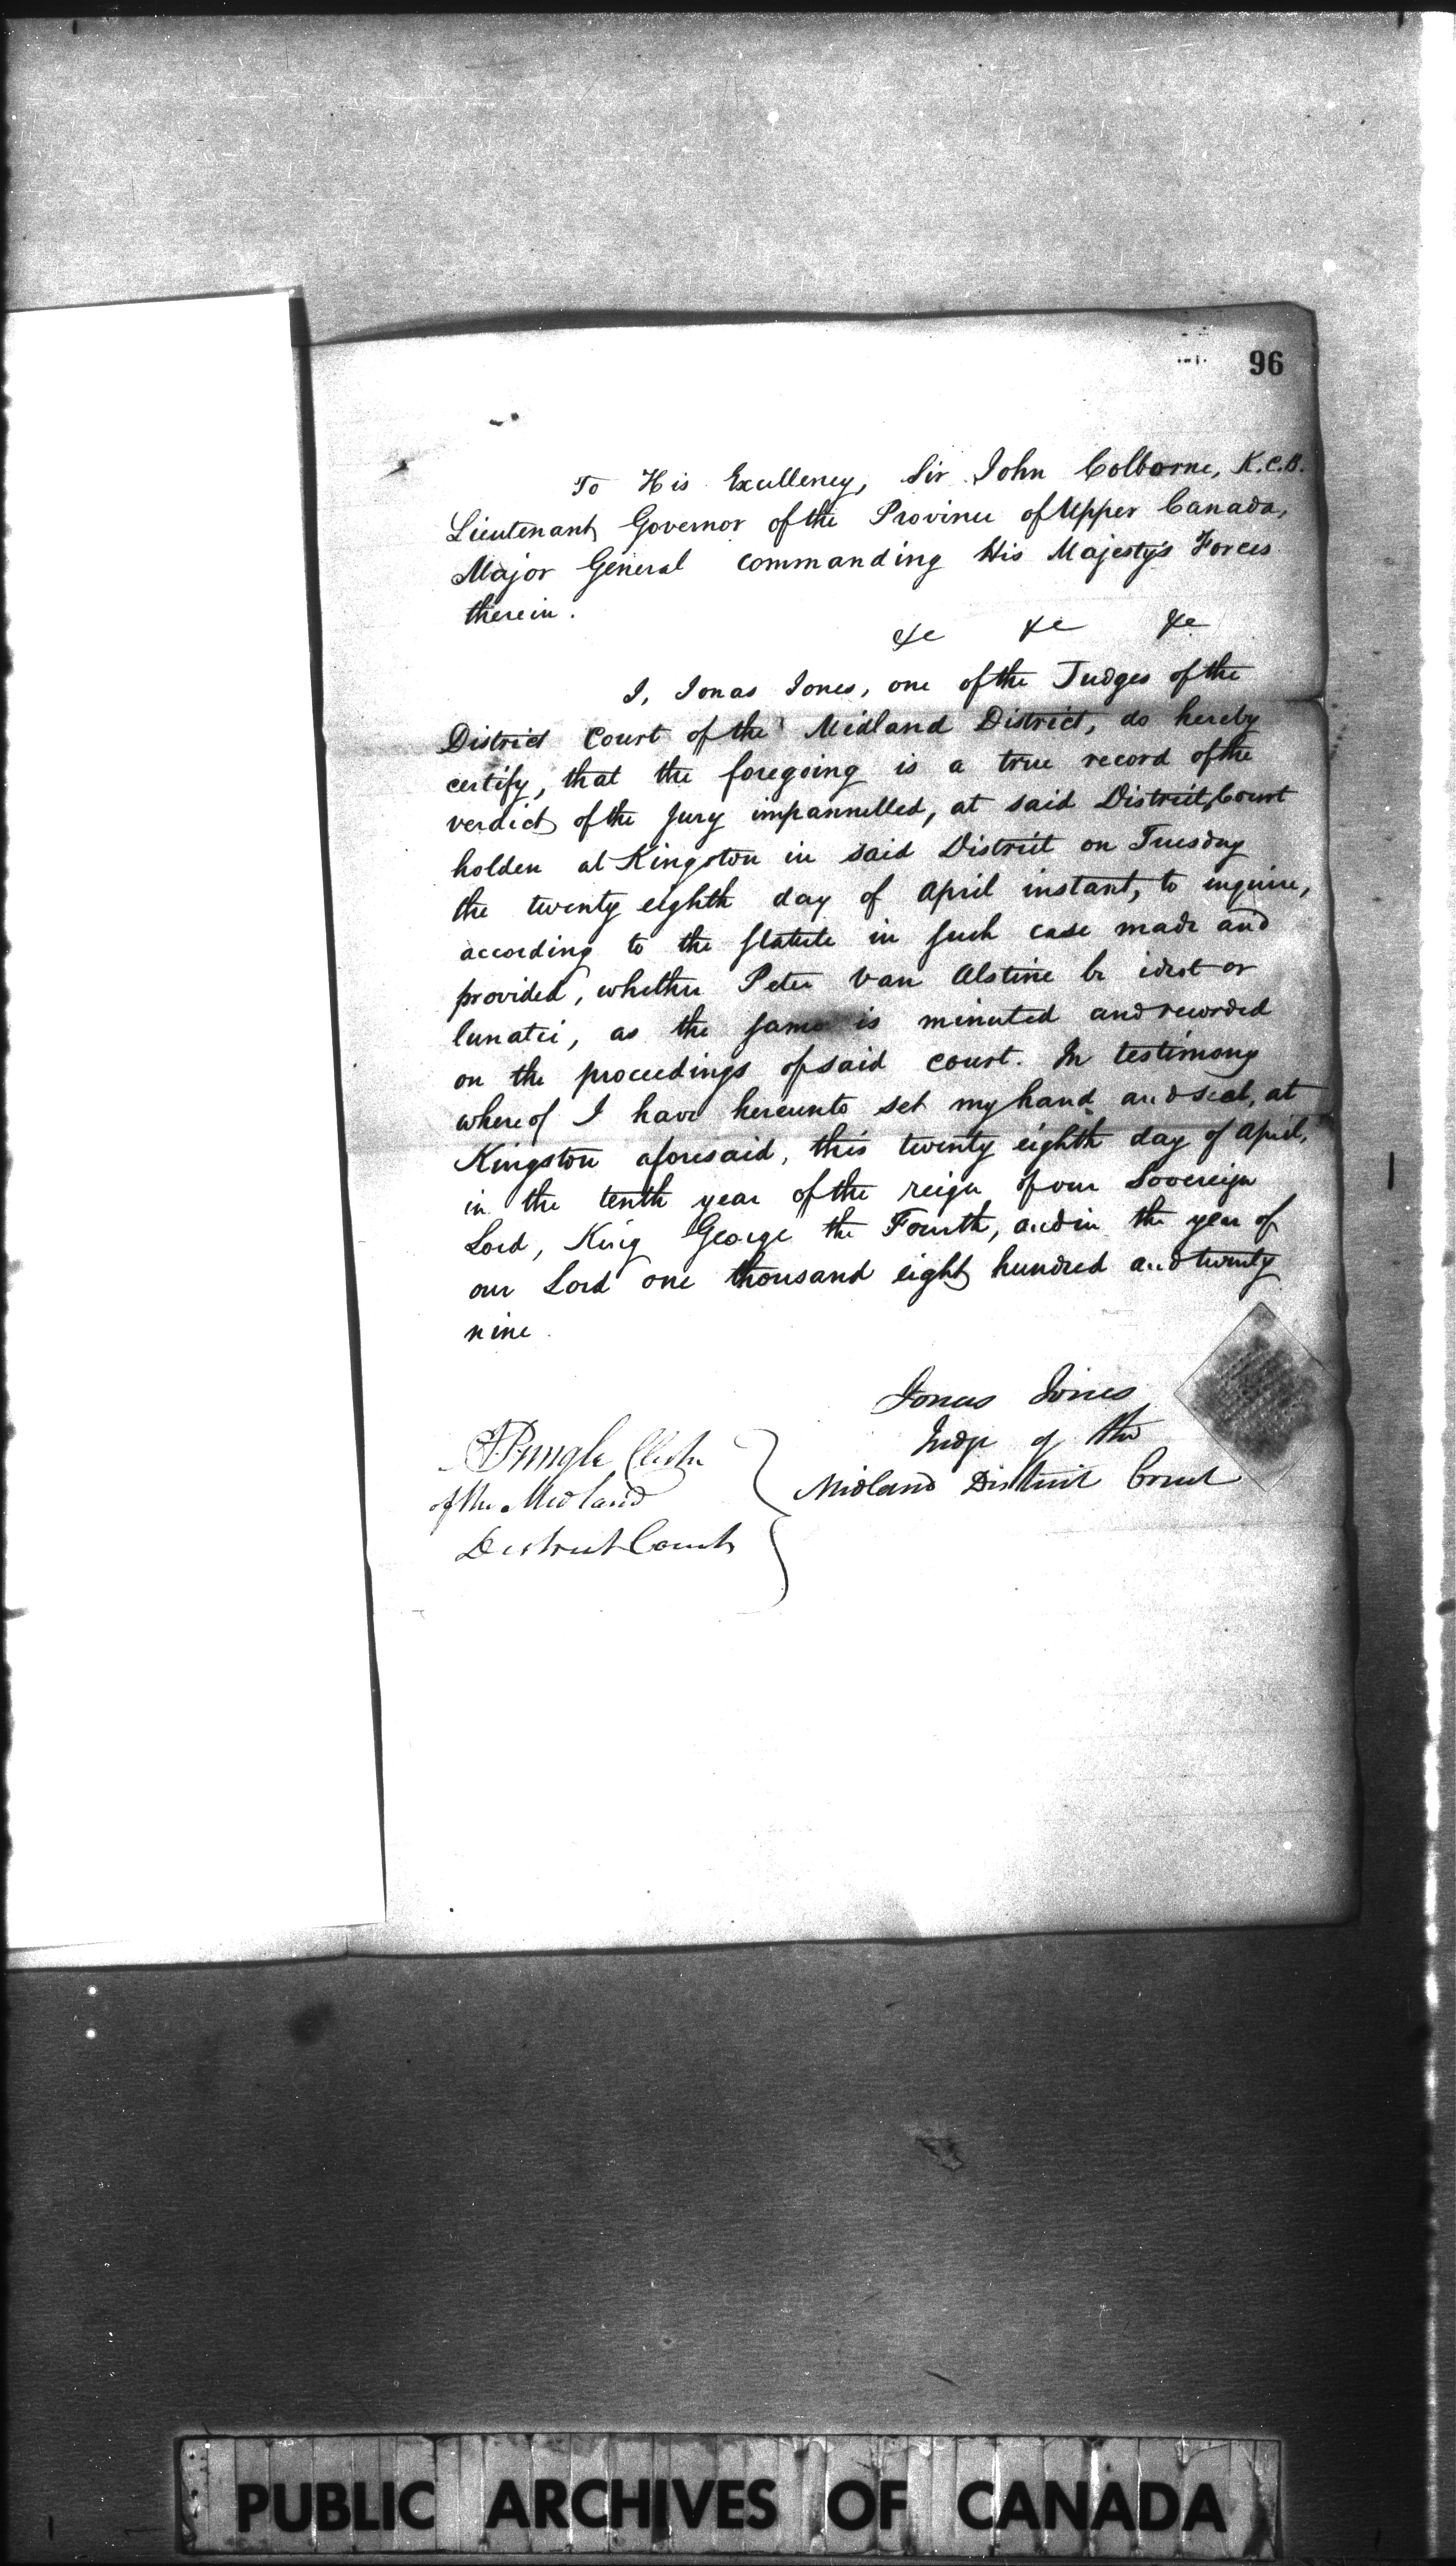 96
To His Excellency, Sir John Colborne, K.C.B.
Lieutenant Governor of the Province of Upper Canada,
Major General commanding His Majesty's Forces
therein.
&c &c &c
I, Jonas Jones, one of the Judges of the
District Court of the Midland District, do hereby
certify, that the foregoing is a true record of the
verdict of the Jury impannelled, at said District Court
holden at Kingston in said District on Tuesday
the twenty eighth day of April instant, to inquire,
according to the statute in such case made and
provided, whether Peter Van Alstine be idiot or
lunatic, as the same is minuted and recorded
on the proceedings of said court. In testimony
whereof I have hereunto set my hand and seal, at
Kingston aforesaid, this twenty eighth day of April,
in the tenth year of the reign of our Sovereign
Lord, King George the Fourth, and in the year of
our Lord one thousand eight hundred and twenty
nine.
Jonas Jones
Judge of the
Midland District Court
Pringle Clerk
of the Midland
District Court
PUBLIC ARCHIVES OF CANADA